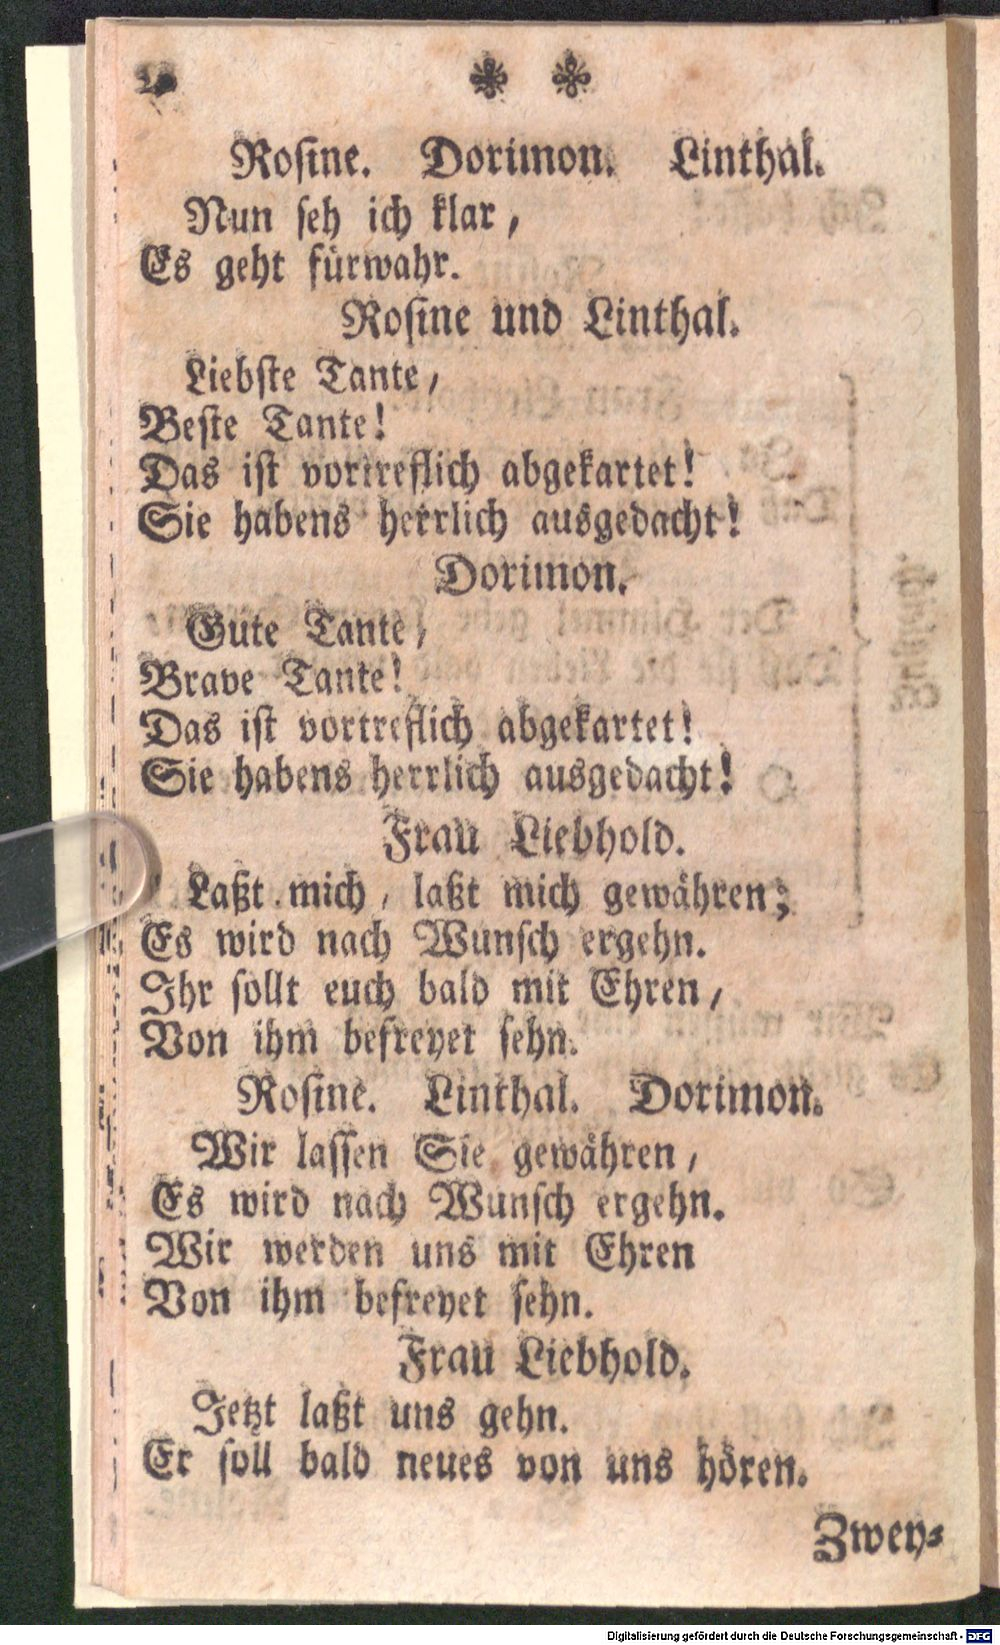 Rosine. Dorimon. Linthal.
Nun seh ich klar,
Es geht fürwahr.
Rosine und Linthal.
Liebste Tante,
Beste Tante!
Das ist vortreflich abgekartet!
Sie habens herrlich ausgedacht!
Dorimon.
Gute Tante,
Brave Tante!
Das ist vortreflich abgekartet!
Sie habens herrlich ausgedacht!
Frau Liebhold.
Laßt mich, laßt mich gewähren;
Es wird nach Wunsch ergehn.
Ihr sollt euch bald mit Ehren,
Von ihm befreyet sehn.
Rosine. Linthal. Dorimon.
Wir lassen Sie gewähren,
Es wird nach Wunsch ergehn.
Wir werden uns mit Ehren
Von ihm befreyet sehn.
Frau Liebhold.
Jetzt laßt uns gehn.
Er soll bald neues von uns hören.
Zwey-
Digitalisierung gefördert durch die Deutsche Forschungsgemeinschaft - DFG